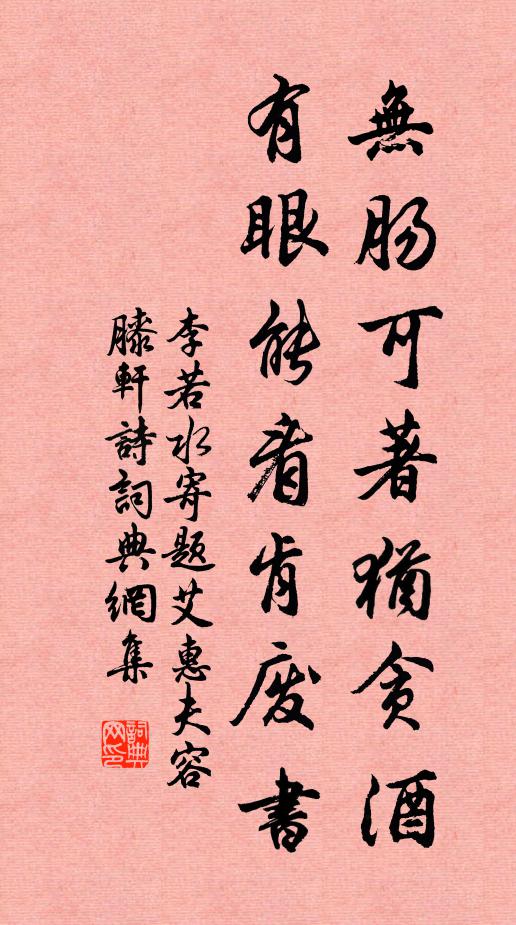 無肠可著猶贪酒
有眼能看肯废書
李若水寄题艾惠夫容
滕軒詩詞典網集
詞典网印